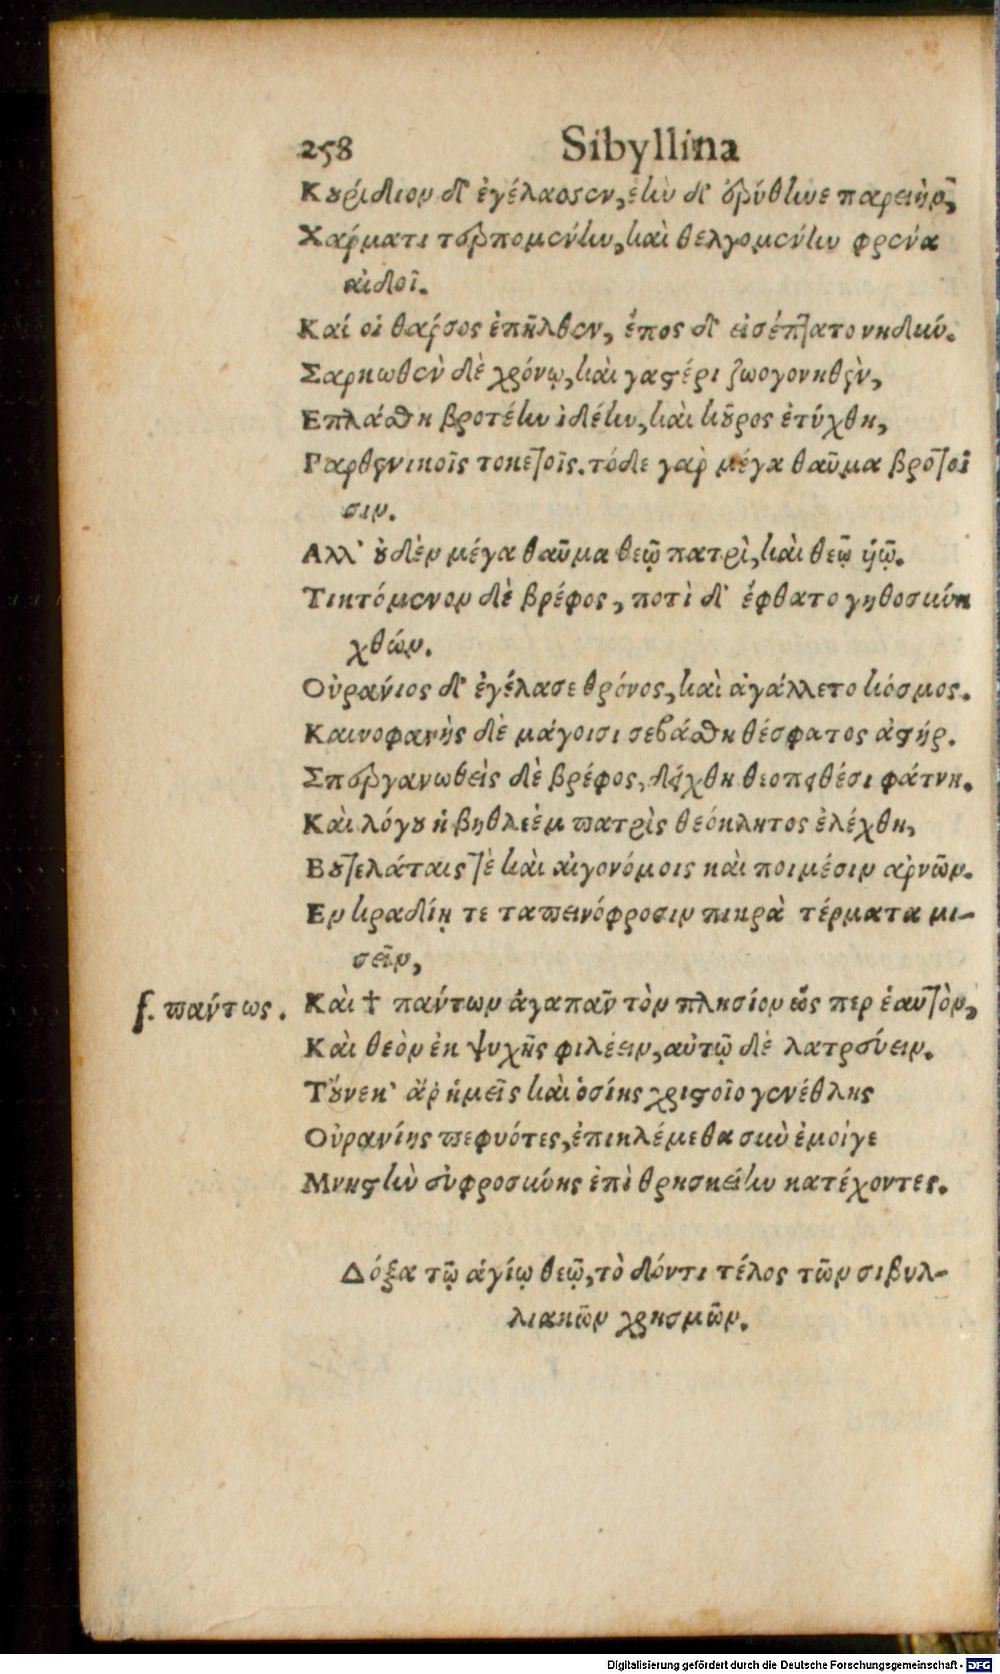 258 Sibyllina
Κουρίδιον δ' ἐγέλασσεν, ἑὴν δ' ἐρύθηνε παρειὴν,
Χάρματι τερπομένην, καὶ θελγομένην φρένα
αἰδοῖ.
Καί οἱ θαρσος ἐπῆλθεν, ἔπος δ' εἰσέπτατο νηδύν.
Σαρκωθὲν δὲ χρόνῳ, καὶ γαστέρι ζωογονηθὲν,
Επλάσθη βροτέην ἰδέην, καὶ κοῦρος ἐτύχθη,
Παρθενικοῖς τοκετοῖς. τόδε γαρ μέγα θαῦμα βροτοῖ
σιν.
Αλλ' οὐδὲν μέγα θαῦμα θεῷ πατρὶ, καὶ θεῷ ὑῷ.
Τικτόμενον δὲ βρέφος, ποτὶ δ' ἔφθατο γηθοσύνη
χθών.
Οὐράνιος δ' ἐγέλασε θρόνος, καὶ ἀγάλλετο κόσμος.
Καινοφανὴς δὲ μάγοισι σεβάσθη θέσφατος ἀστήρ.
Σπαργανωθεὶς δὲ βρέφος, δείχθη θεοπειθέσι φάτνη.
Καὶ λόγου ἡ βηθλεὲμ πατρὶς θεόκλητος ἐλέχθη,
Βουτελάταις τὲ καὶ αἰγονόμοις καὶ ποιμέσιν αρνῶν.
Εν κραδίῃ τε ταπεινόφροσιν πικρὰ τέρματα μι-
σεῖν,
f. πάντως. Καὶ † πάντων ἀγαπᾶν τὸν πλησίον ὥς περ ἑαυτὸν,
Καὶ θεὸν ἐκ ψυχῆς φιλέειν, αὐτῷ δὲ λατρεύειν.
Τοὔνεκ' ἄρ ἡμεῖς καὶ ὁσίης χριστοῖο γενέθλης
Οὐρανίης πεφυότες, ἐπικλέμεθα σὺν ἐμοίγε
Μνηστὴν εὐφροσύνης ἐπὶ θρησκείην κατέχοντες.
Δόξα τῷ ἁγίῳ θεῷ, τὸ δόντι τέλος τῶν σιβυλ-
λιακῶν χρησμῶν.
Digitalisierung gefördert durch die Deutsche Forschungsgemeinschaft - DFG